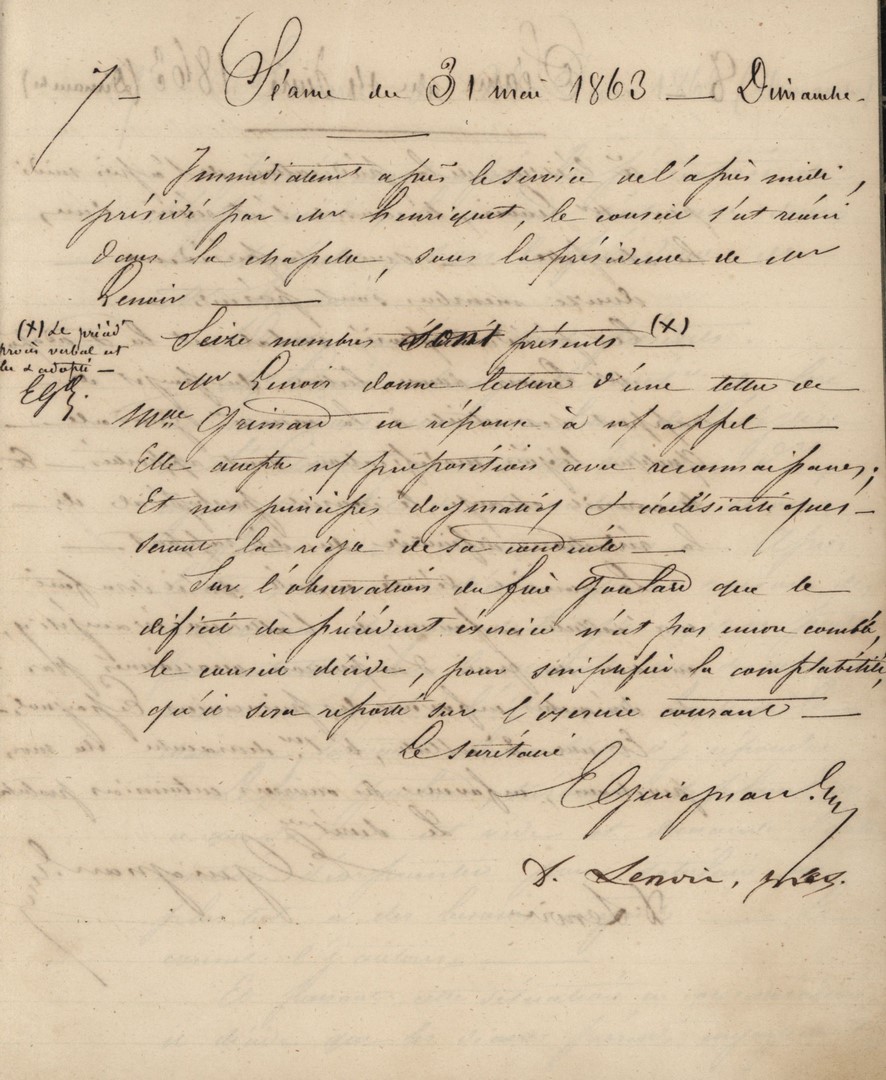 7 — Séance du 31 mai 1863 — Dimanche —
Immédiatement après le service de l'après midi,
présidé par Mr henriquet, le conseil s'est réuni
dans la chapelle, sous la présidence de Mr
Lenoir —
Seize membres sont présents (X) —
(X) Le précédt
procès verbal est
lu & adopté —
EG
Mr Lenoir donne lecture d'une lettre de
Mme Grimard en réponse à n/ appel —
Elle accepte n/ propositions avec reconnaissance;
Et nos principes dogmatiqs & ecclésiastiques —
seront la règle de sa conduite —
Sur l'observation du frère Goulard que le
déficit du précédent éxercice n'est pas encore comblé,
le conseil décide, pour simplifier la comptabilité,
qu'il sera reporté sur l'éxercice courant —
Le secrétaire
E Guignard
D. Lenoir, prés.